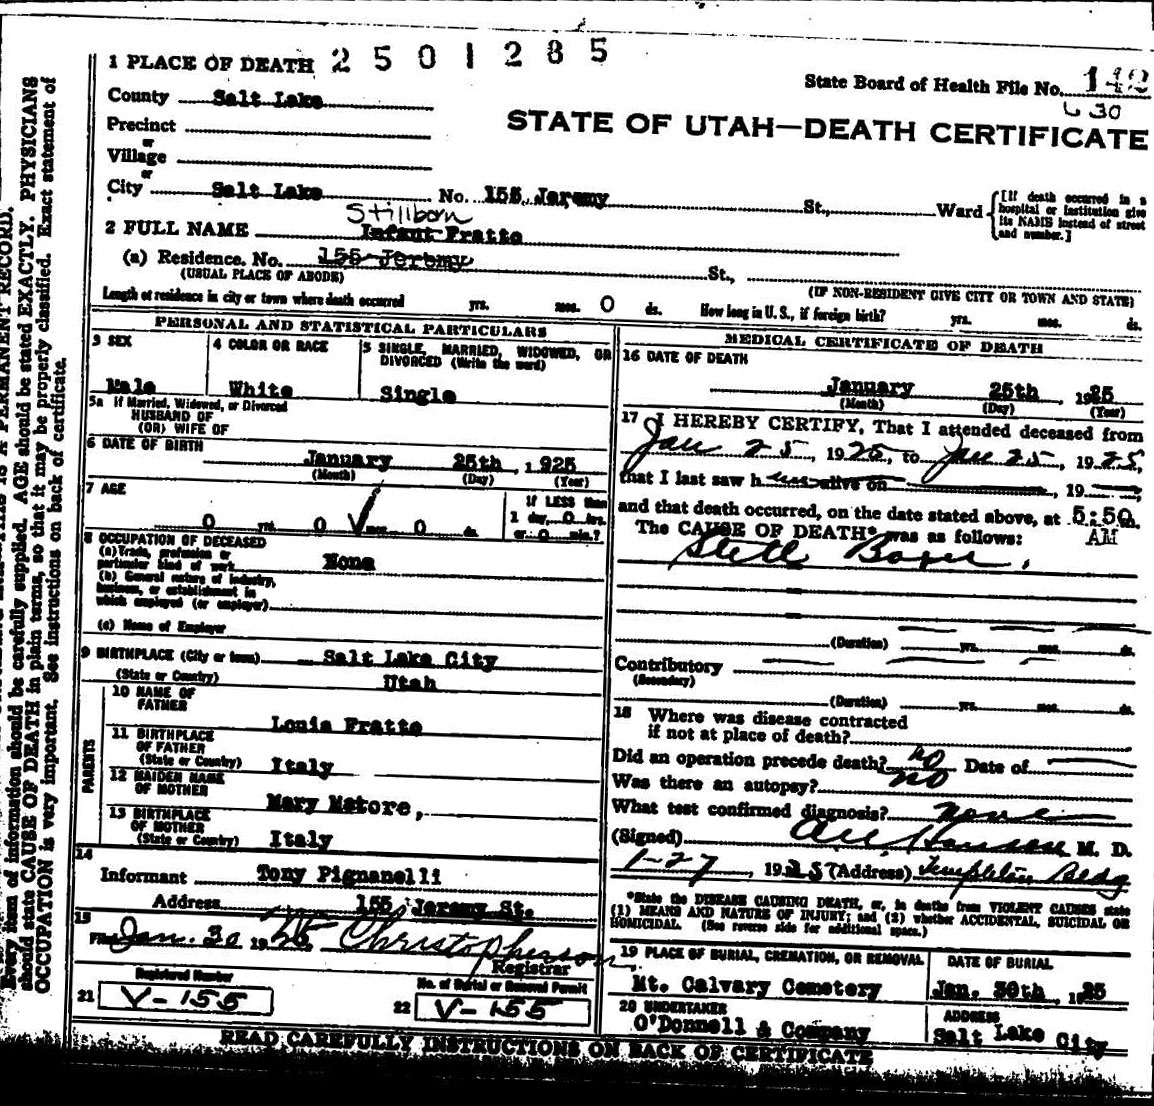 2501285
1 PLACE OF DEATH
State Board of Health File No. 142
County Salt Lake
630
STATE OF UTAH—DEATH CERTIFICATE
Precinct
or
Village
or
City Salt Lake No. 155 Jeremy St., Ward
[If death occurred in a hospital or institution give its NAME instead of street and number.]
Stillborn
2 FULL NAME Infant Fratto
(a) Residence. No. 155 Jeremy St.,
(USUAL PLACE OF ABODE)
(IF NON-RESIDENT GIVE CITY OR TOWN AND STATE)
Length of residence in city or town where death occurred yrs. mos. 0 ds. How long in U. S., if foreign birth? yrs. mos. ds.
PERSONAL AND STATISTICAL PARTICULARS
3 SEX
Male
4 COLOR OR RACE
White
5 SINGLE, MARRIED, WIDOWED, OR DIVORCED (Write the word)
Single
5a If Married, Widowed, or Divorced
HUSBAND OF
(OR) WIFE OF
6 DATE OF BIRTH
January 25th, 1925
(Month) (Day) (Year)
7 AGE
0 yrs. 0 mos. 0 ds.
If LESS than
1 day, 0 hrs.
or 0 min.?
8 OCCUPATION OF DECEASED
(a) Trade, profession or
particular kind of work None
(b) General nature of industry,
business, or establishment in
which employed (or employer)
(c) Name of Employer
9 BIRTHPLACE (City or town) Salt Lake City
(State or Country) Utah
PARENTS
10 NAME OF
FATHER Louis Fratto
11 BIRTHPLACE
OF FATHER
(State or Country) Italy
12 MAIDEN NAME
OF MOTHER Mary Matore,
13 BIRTHPLACE
OF MOTHER
(State or Country) Italy
14
Informant Tony Pignanelli
Address 155 Jeremy St.
15
Filed Jan. 30 1925 Christopherson
Registrar
Registered Number
21 V-155
No. of Burial or Removal Permit
22 V-155
MEDICAL CERTIFICATE OF DEATH
16 DATE OF DEATH
January 25th, 1925
(Month) (Day) (Year)
17 I HEREBY CERTIFY, That I attended deceased from
Jan 25, 1925, to Jan 25, 1925,
that I last saw h alive on , 19 ,
and that death occurred, on the date stated above, at 5:50 m.
AM
The CAUSE OF DEATH* was as follows:
Still Born.
(Duration) yrs. mos. ds.
Contributory
(Secondary)
(Duration) yrs. mos. ds.
18 Where was disease contracted
if not at place of death?
Did an operation precede death? no Date of
Was there an autopsy? no
What test confirmed diagnosis? none
(Signed) M. D.
1-27, 1925 (Address) Templeton Bldg
*State the DISEASE CAUSING DEATH, or, in deaths from VIOLENT CAUSES state
(1) MEANS AND NATURE OF INJURY; and (2) whether ACCIDENTAL, SUICIDAL OR
HOMICIDAL. (See reverse side for additional space.)
19 PLACE OF BURIAL, CREMATION, OR REMOVAL
Mt. Calvary Cemetery
DATE OF BURIAL
Jan. 30th, 1925
20 UNDERTAKER
O'Donnell & Company
ADDRESS
Salt Lake City
READ CAREFULLY INSTRUCTIONS ON BACK OF CERTIFICATE
IS A PERMANENT RECORD.
Every item of information should be carefully supplied. AGE should be stated EXACTLY. PHYSICIANS
should state CAUSE OF DEATH in plain terms, so that it may be properly classified. Exact statement of
OCCUPATION is very important. See instructions on back of certificate.